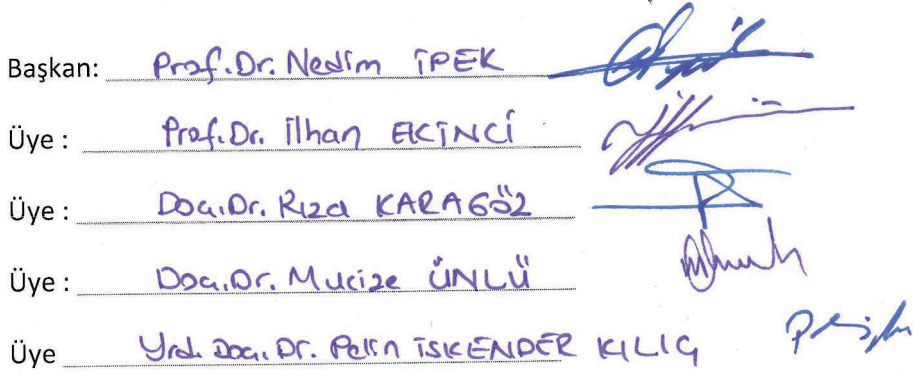 Başkan: Prof. Dr. Nedim İPEK
Üye : Prof. Dr. İlhan EKİNCİ
Üye : Doç. Dr. Rıza KARAGÖZ
Üye : Doç. Dr. Mucize ÜNLÜ
Üye Yrd. Doç. Dr. Pelin İSKENDER KILIÇ